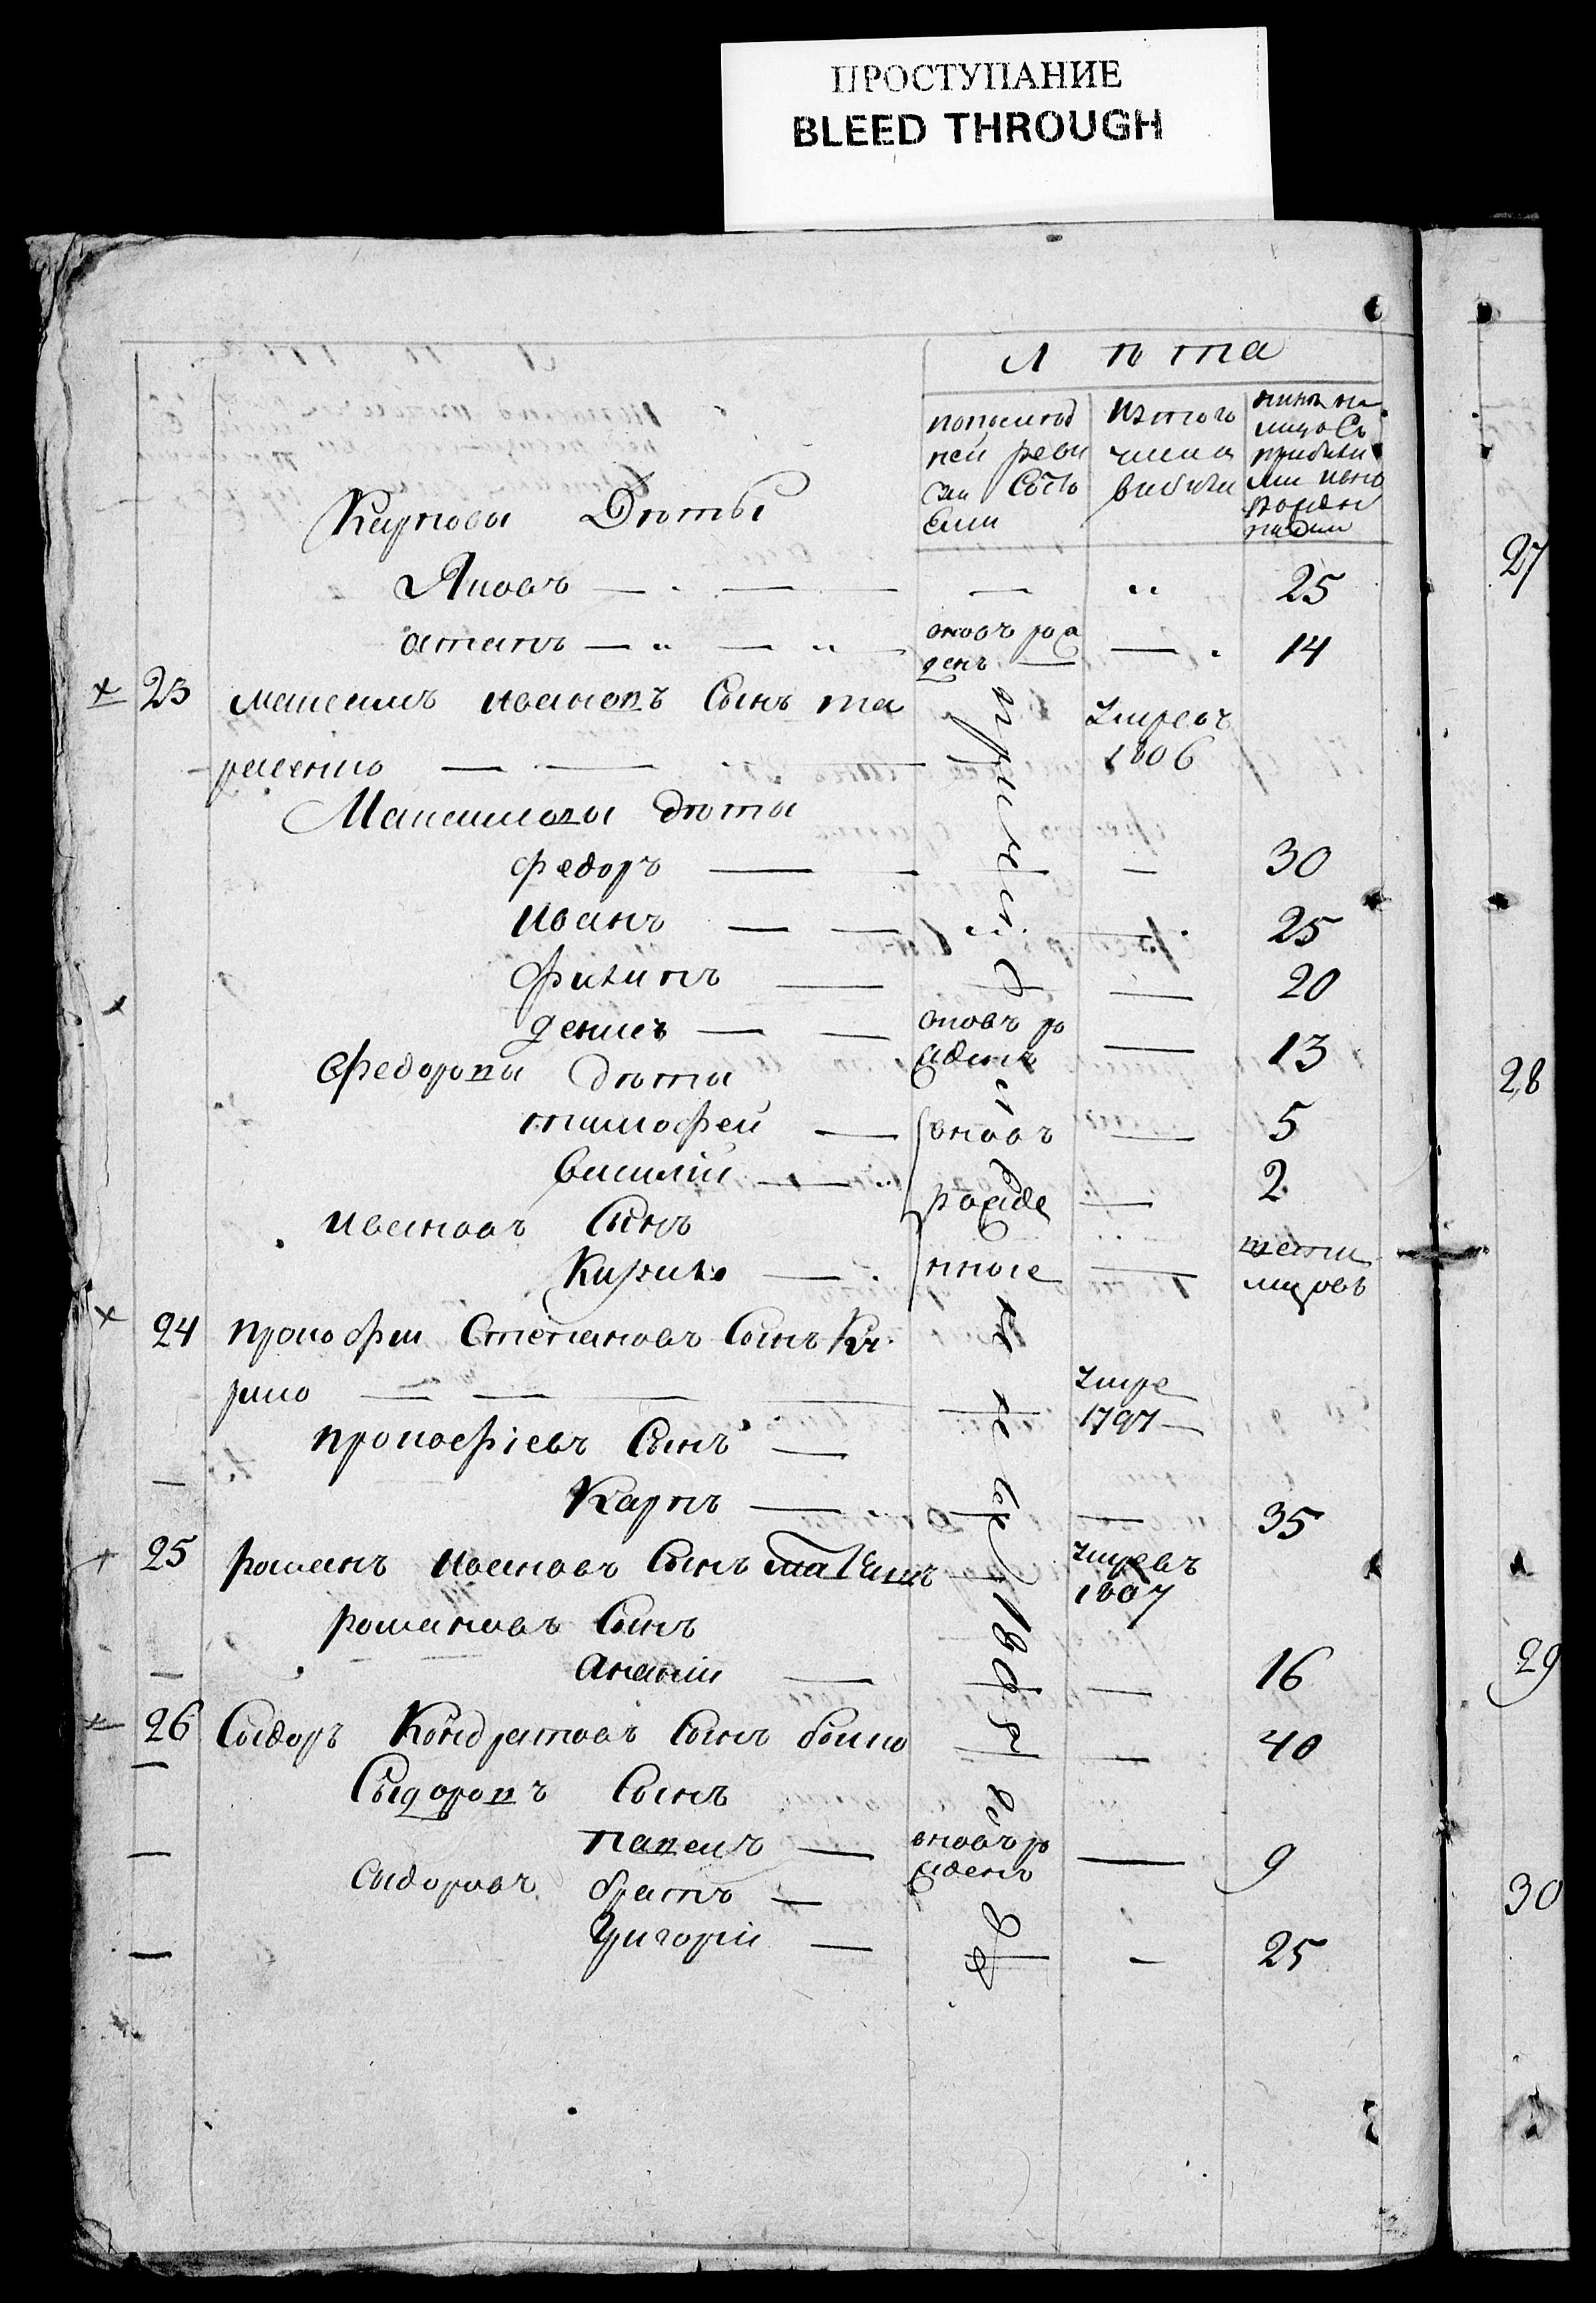 ПРОСТУПАНИЕ
BLEED THROUGH
Лѣта
попослѣд изтого нинѣ на
ней реви числа лицо Съ
зіи Состо вибили прибили
яли ми иново
рожден
ними
Карповы Дѣты
Яковъ — — — — 25
Отапъ — — вновъ рож
денъ — — 14
23 максимъ ивановъ Сынъ та
расенко — — Умревъ
1806
Максимовы дѣты
федоръ — — — 30
иванъ — — — 25
филипъ — — — 20
денисъ — — вновъ ро
жденъ — 13
Федоровы дѣты
тимофей — вновъ — 5
василій — рожде — 2
ивановъ Сынъ
Кирило — нные — шети
мцовъ
24 прокофій Степановъ Сынъ Ки
рило — — — Умре
1797 —
прокофіевъ Сынъ —
Карпъ — — 35
25 романъ ивановъ Сынъ Умревъ
1807
романовъ Сынъ
ананій — — 16
26 Сыдоръ Кондратовъ Сынъ бойко — — 40
Сыдоровъ Сынъ
павелъ — вновъ ро
жденъ — 9
сыдоровъ братъ —
Григорій — — 25
27
28
29
30